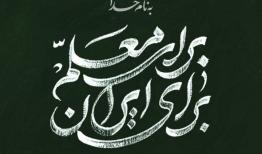 به نام خدا
برای معلم
برای ایران